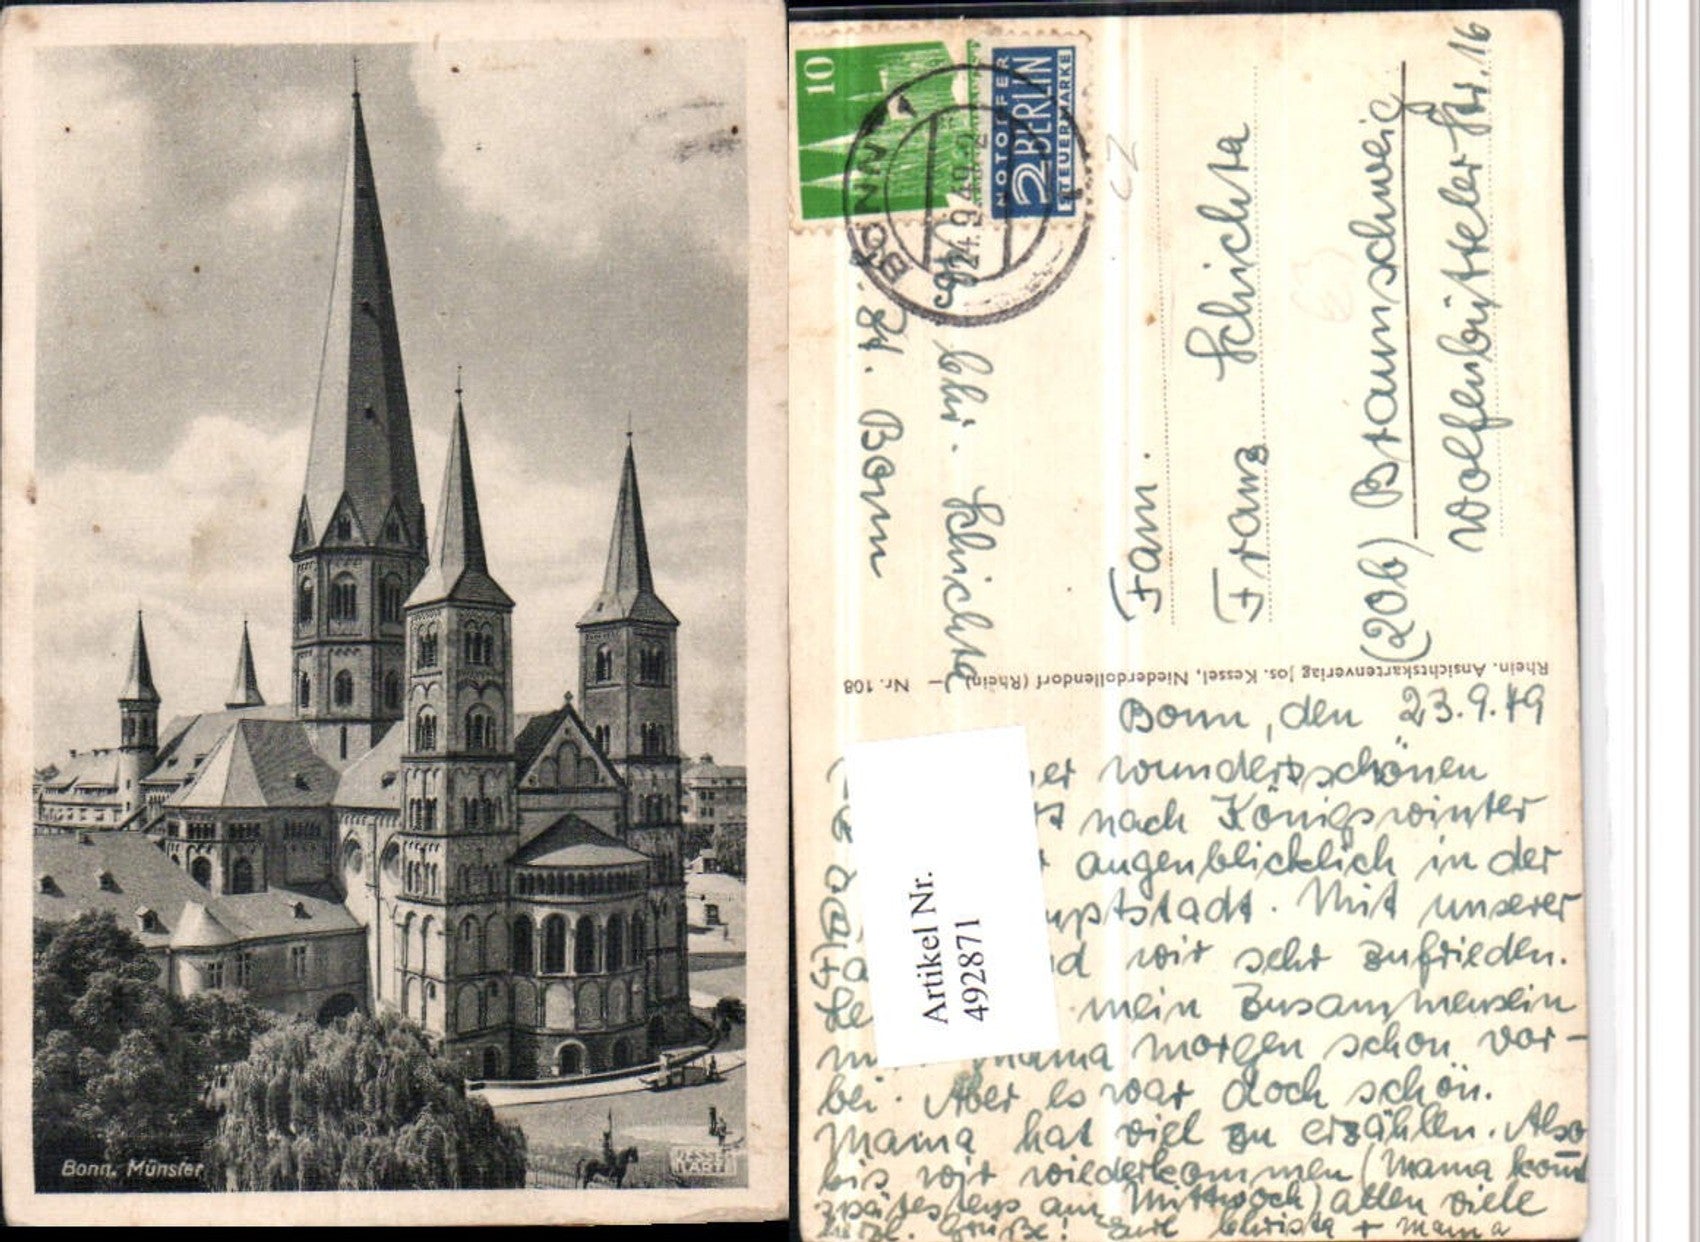 Bonn. Münster
KESSEL
KARTE
10
NOTOPFER
2 BERLIN
STEUERMARKE
BONN
24.9.49
Abs. Chr. Schichta
z. Zt. Bonn
Fam.
Franz Schichta
(20b) Braunschweig
Wolfenbütteler Str. 16
Rhein. Ansichtskartenverlag Jos. Kessel, Niederdollendorf (Rhein) — Nr. 108
Artikel Nr.
492871
Bonn, den 23.9.49
wunderschönen
nach Königswinter
augenblicklich in der
Mit unserer
wir sehr zufrieden.
mein Zusammensein
Mama morgen schon vor-
bei. Aber es war doch schön.
Mama hat viel zu erzählen. Also
bis wir wiederkommen (Mama kommt
spätestens am Mittwoch) allen viele
herzl. Grüße! Eure Christa + Mama